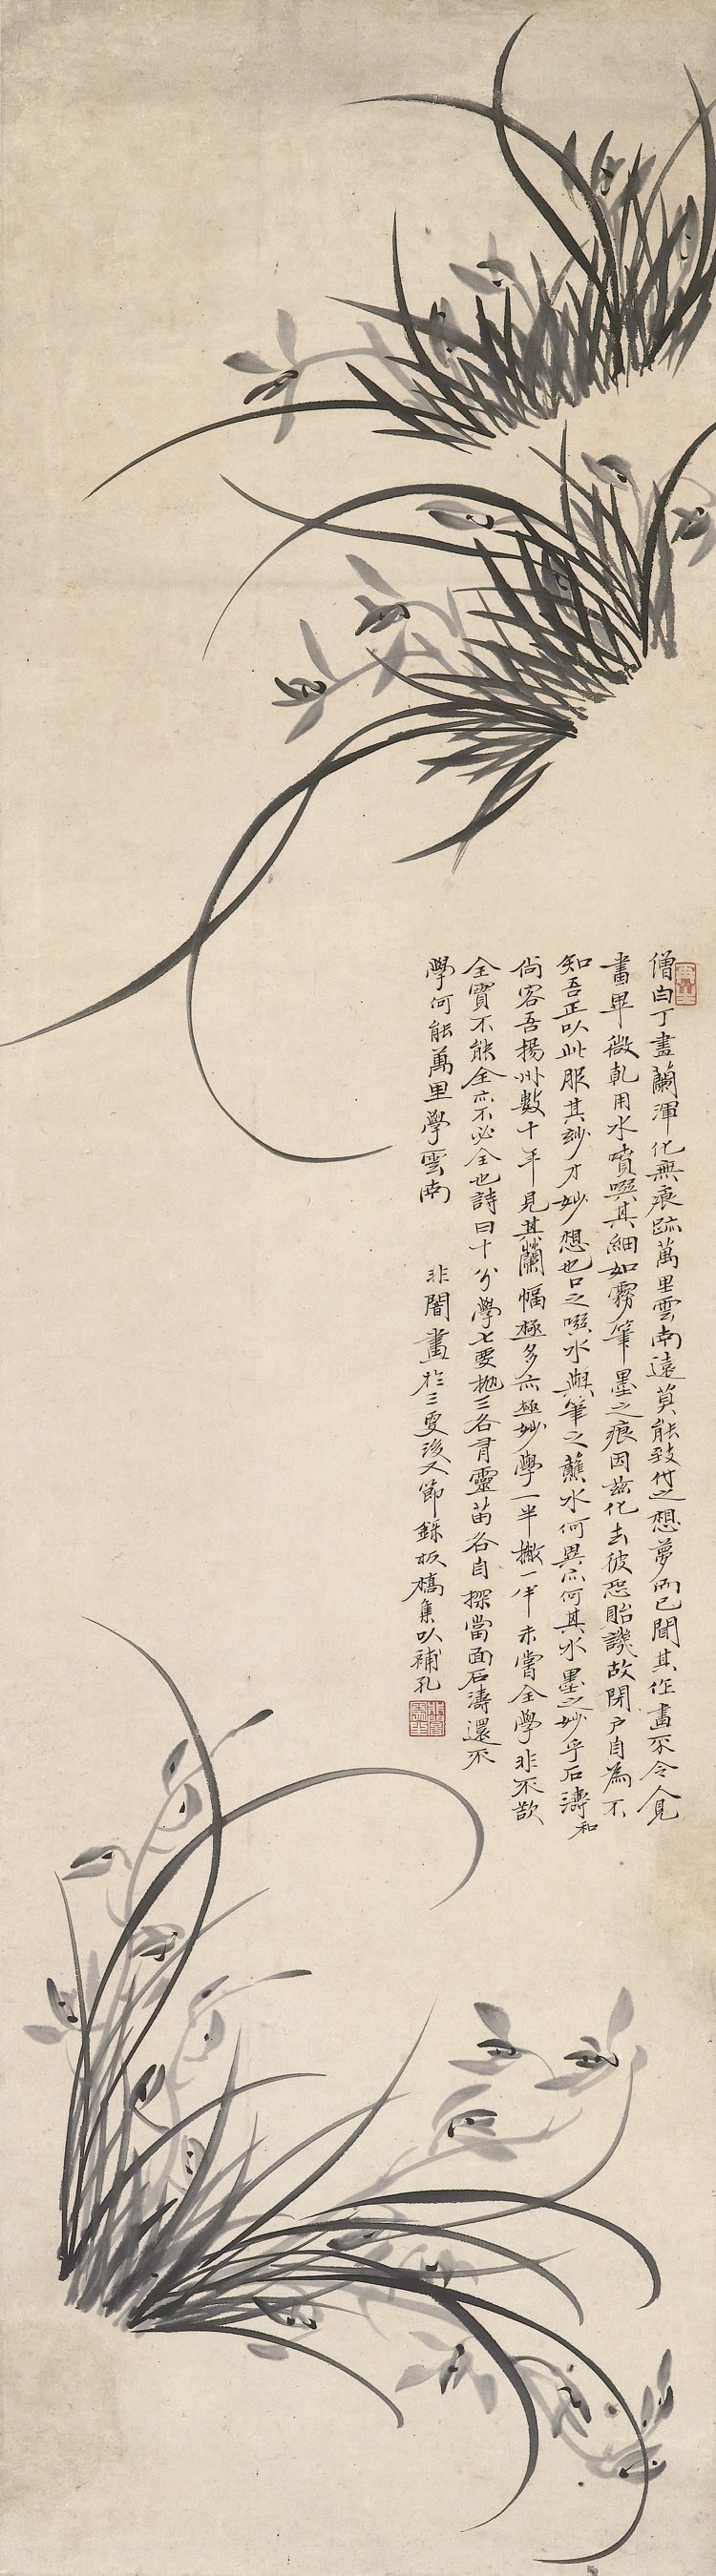 僧白丁畫蘭渾化無痕跡萬里雲南遠莫能致付之想夢而已聞其作畫不令人見
畫畢微乾用水噴噀其細如霧筆墨之痕因茲化去彼恐貽譏故閉戶自為不
知吾正以此服其妙才妙想也口之噀水與筆之蘸水何異亦何非水墨之妙乎石濤和
尚客吾揚州數十年見其蘭幅極多亦極妙學一半撇一半未嘗全學非不欲
全實不能全亦不必全也詩曰十分學七要拋三各有靈苗各自探當面石濤還不
學何能萬里學雲南
非闇畫於三更後又節錄板橋集以補孔